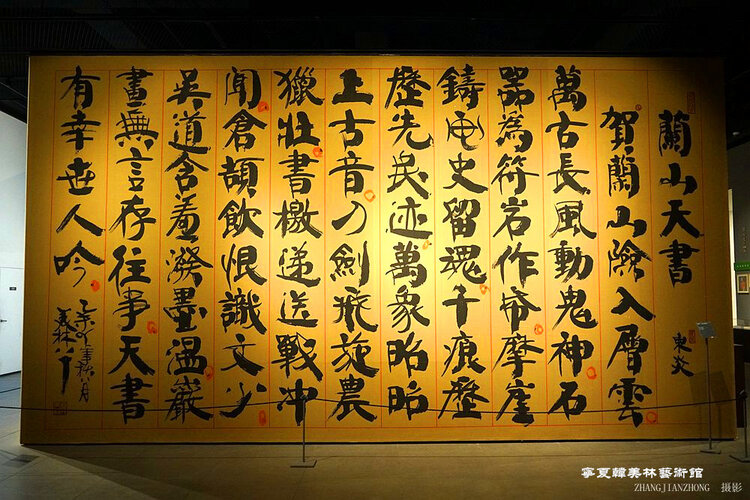 蘭山天書
東炎
賀蘭山險入層雲
萬古長風動鬼神石
器為符岩作帋摩崖
鑄史留魂千痕歷
歷先民迹萬象昭昭
上古音刀劍飛旋農
獵壯書檄遞送戰冲
聞倉頡飲恨識文少
吴道含羞潑墨温巖
畫無言存往事天書
有幸世人吟
美林
寧夏韓美林藝術館
ZHANGJIANZHONG 摄影